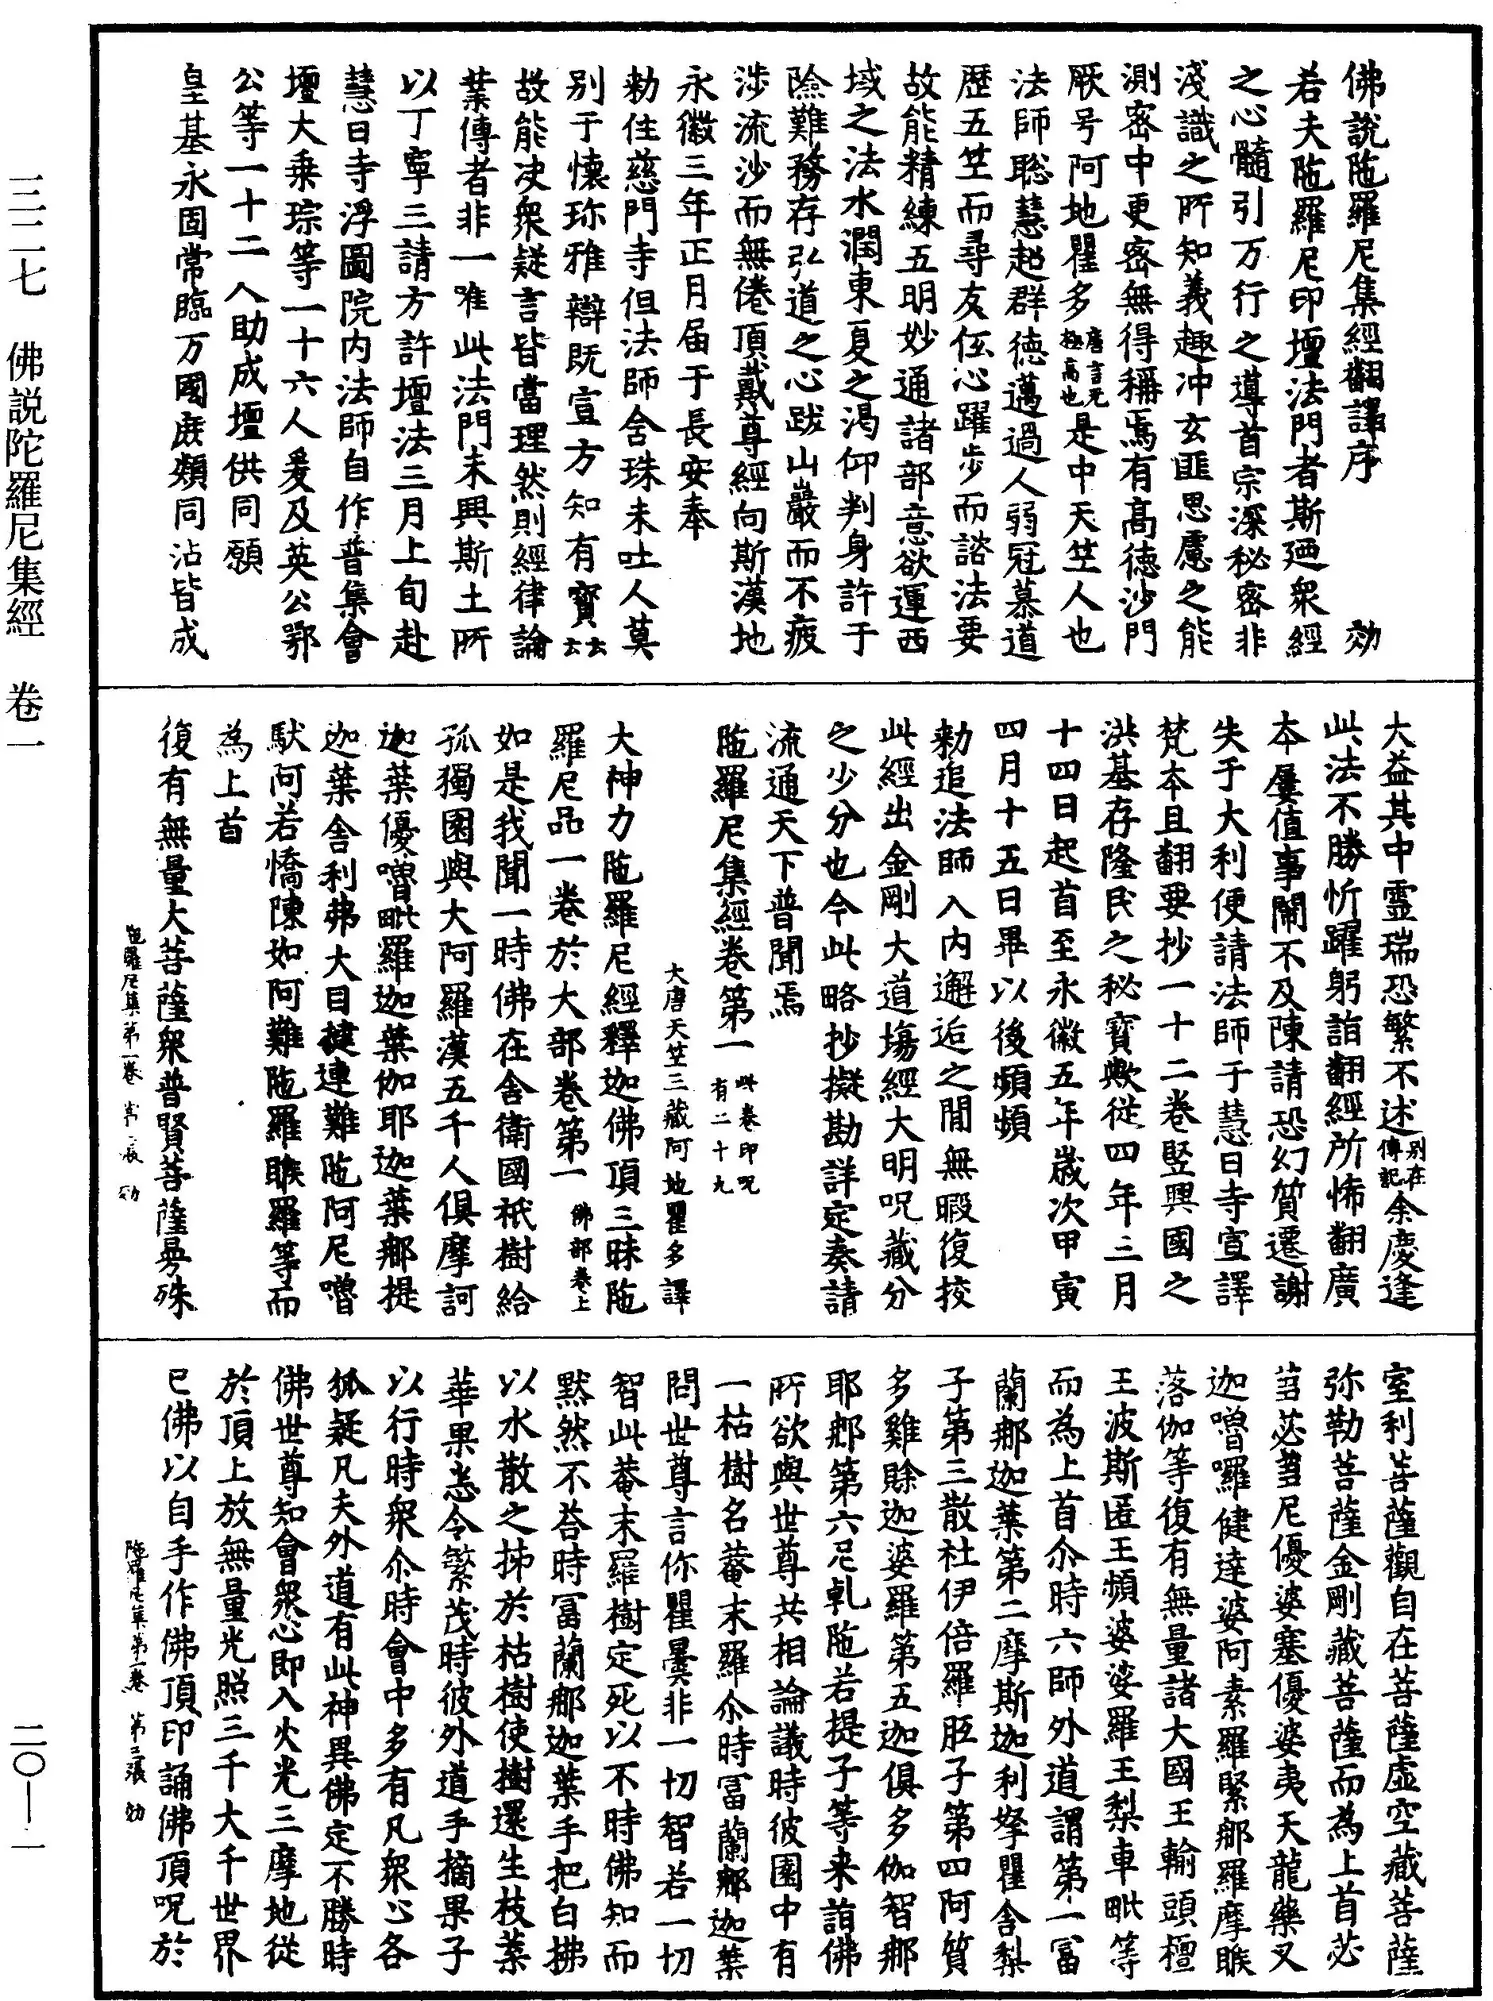 佛說陁羅尼集經翻譯序　効
若夫陁羅尼印壇法門者斯廼眾經
之心髓引万行之導首宗深秘密非
淺識之所知義趣冲玄匪思慮之能
測密中更密無得稱焉有高德沙門
厥号阿地瞿多唐言无極高也是中天竺人也
法師聡慧超群德邁過人弱冠慕道
歷五竺而尋友伍沁躍步而諮法要
故能精練五明妙通諸部意欲運西
域之法水潤東夏之渴仰判身許于
險難務存弘道之心跋山巖而不疲
涉流沙而無倦頂戴尊經向斯漢地
永徽三年正月届于長安奉
勑住慈門寺但法師含珠未吐人莫
別于懷珎雅辯既宣方知有寶去去
故能決眾疑言皆當理然則經律論
業傳者非一唯此法門未興斯土所
以丁寧三請方許壇法三月上旬赴
慧日寺浮圖院内法師自作普集會
壇大乘琮等一十六人爰及英公鄂
公等一十二人助成壇供同願
皇基永固常臨万國庶類同沾皆成
大益其中霊瑞恐繁不述別在傳記余慶逢
此法不勝忻躍躬詣翻經所悕翻廣
本屢值事閙不及陳請恐幻質遷謝
失于大利便請法師于慧日寺宣譯
梵本且翻要抄一十二卷竪興國之
洪基存隆民之秘寶歟従四年三月
十四日起首至永徽五年歲次甲寅
四月十五日畢以後頻頻
勑追法師入内邂逅之間無暇復挍
此經出金剛大道塲經大明呪藏分
之少分也今此略抄擬勘詳定奏請
流通天下普聞焉
陁羅尼集經卷第一　此卷印呪有二十九
大唐天竺三藏阿地瞿多譯
大神力陁羅尼經釋迦佛頂三昧陁
羅尼品一卷於大部卷第一　佛部卷上
如是我聞一時佛在舍衛國祇樹給
孤獨園與大阿羅漢五千人俱摩訶
迦葉優嚕毗羅迦葉伽耶迦葉那提
迦葉舍利弗大目揵連難陁阿尼嚕
馱阿若憍陳如阿難陁羅睺羅等而
為上首
復有無量大菩薩眾普賢菩薩曼殊
陁羅尼集第一卷　第二張　効
室利菩薩觀自在菩薩虛空藏菩薩
弥勒菩薩金剛藏菩薩而為上首苾
蒭苾蒭尼優婆塞優婆夷天龍藥叉
迦嚕囉健達婆阿素羅緊那羅摩睺
落伽等復有無量諸大國王輸頭檀
王波斯匿王頻婆娑羅王梨車毗等
而為上首尒時六師外道謂第一冨
蘭那迦葉第二摩斯迦利拏瞿舍梨
子第三散社伊倍羅胝子第四阿質
多雞賖迦婆羅第五迦俱多伽智那
耶那第六尼軋陁若提子等来詣佛
所欲與世尊共相論議時彼園中有
一枯樹名菴末羅尒時冨蘭那迦葉
問世尊言你瞿曇非一切智若一切
智此菴末羅樹定死以不時佛知而
黙然不荅時冨蘭那迦葉手把白拂
以水散之拂於枯樹使樹還生枝葉
華果悉令繁茂時彼外道手摘果子
以行時眾尒時會中多有凡眾心各
狐疑凡夫外道有此神異佛定不勝時
佛世尊知會眾心即入火光三摩地從
於頂上放無量光照三千大千世界
已佛以自手作佛頂印誦佛頂呪於
陁羅尼集第一卷　第三張　効
三二七　佛說陀羅尼集經　卷一
二〇—一